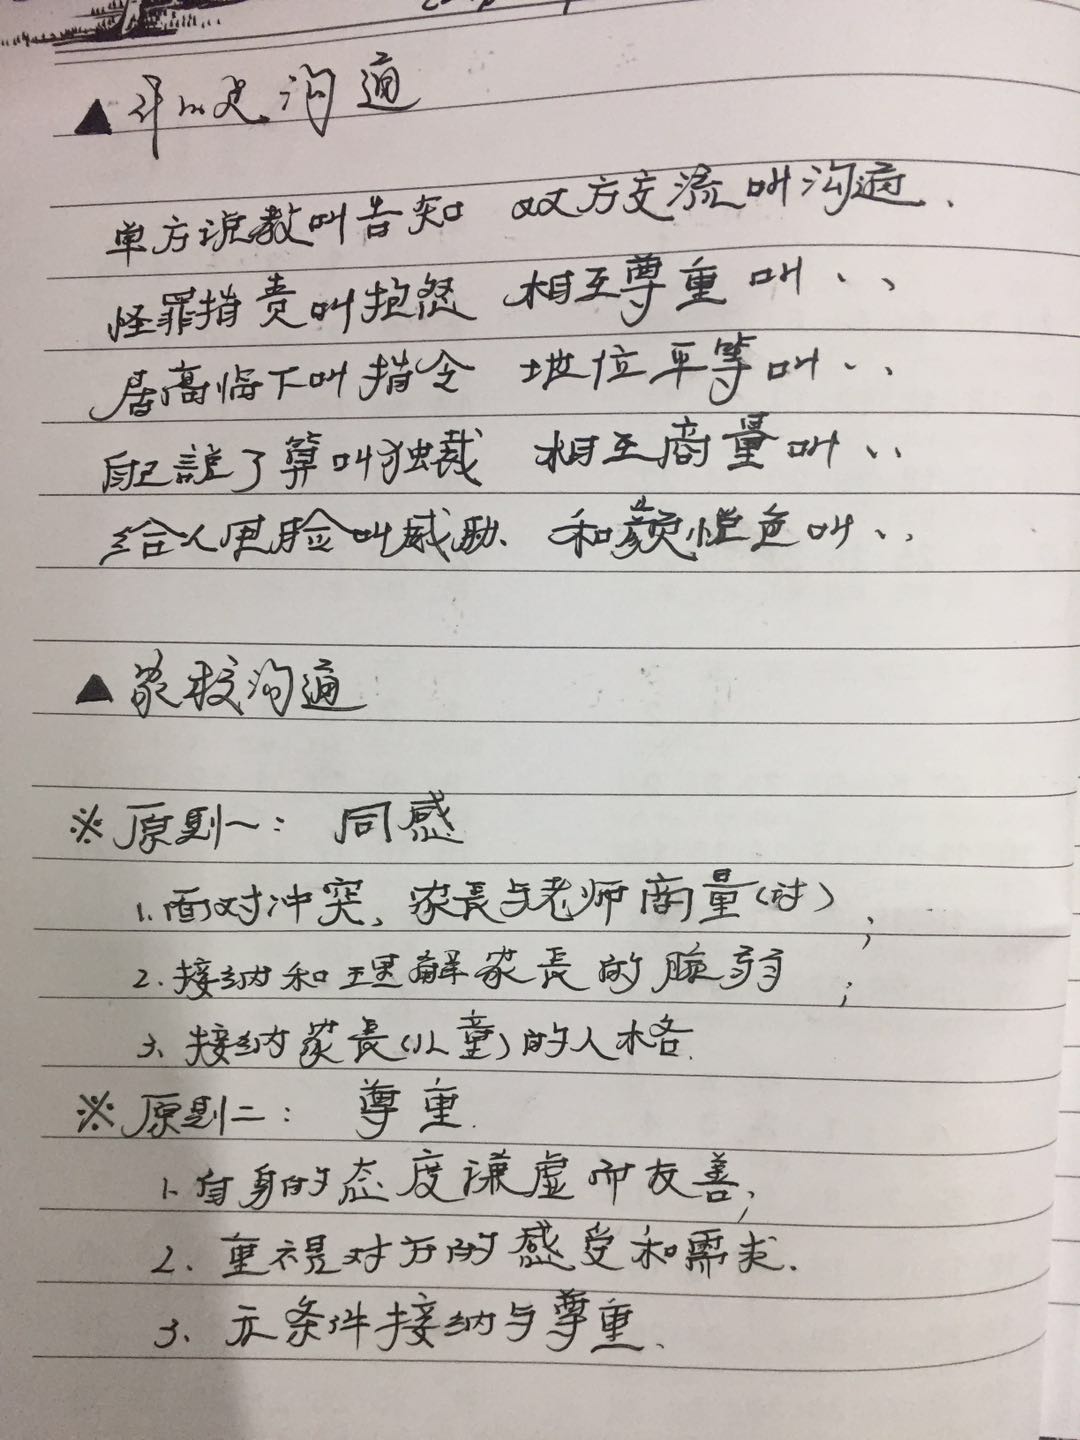 ▲ 沟通
单方说教叫告知 双方交流叫沟通.
怪罪指责叫抱怨 相互尊重叫、、
居高临下叫指令 地位平等叫、、
自己說了算叫独裁 相互商量叫、、
给人甩脸叫威胁. 和颜悦色叫、、
▲ 家校沟通
※ 原则一: 同感
1.面对冲突,家長与老师商量(讨);
2.接纳和理解家長的脆弱;
3、接纳家長(儿童)的人格.
※ 原则二: 尊重.
1、自身的态度谦虚而友善;
2、重视对方的感受和需求.
3、无条件接纳与尊重.